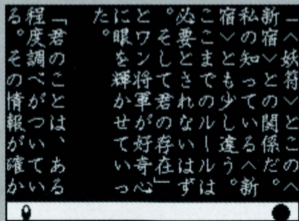 「〈妖符〉とこの〈
新宿〉との関係だ。
私の知っている〈新
宿〉とも少し違う。
ここまでのルールは
必要とされないはず
。そして君の存在」
とワン将軍が好奇心
に眼を輝かせていっ
た。
「君のことは、ある
程度調べがついてい
る。その情報が確か